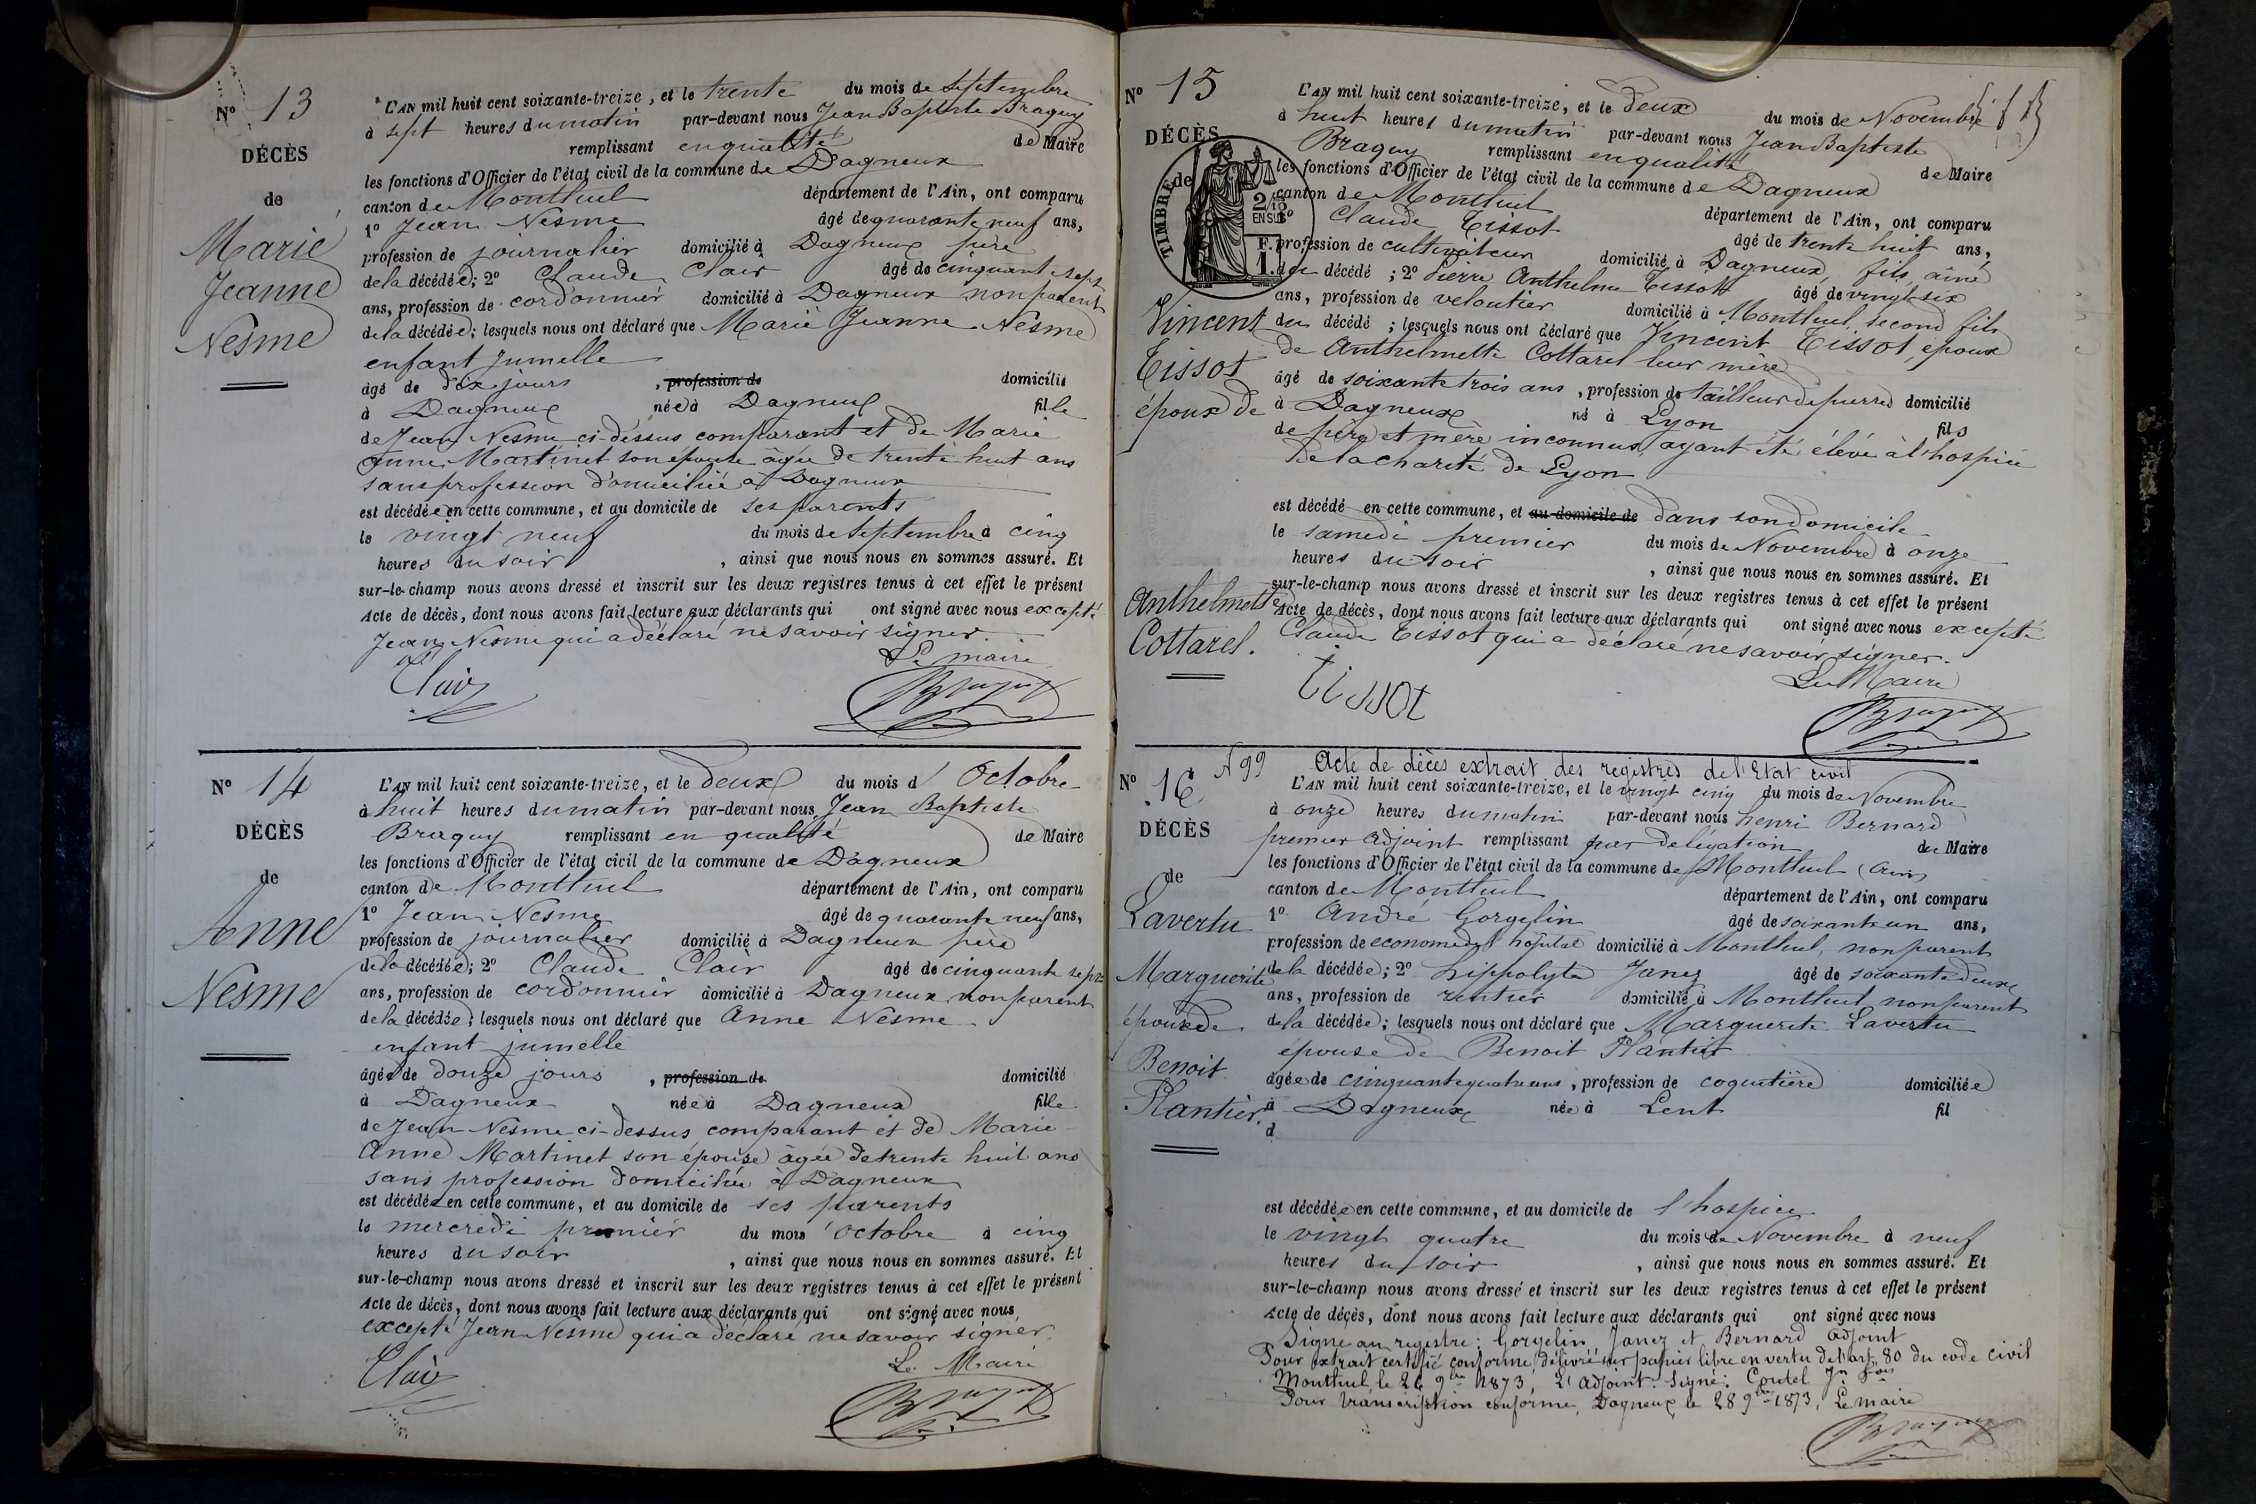 N° 13
DÉCÈS
de
Marie
Jeanne
Nesme
L'AN mil huit cent soixante-treize, et le trente du mois de Septembre
à sept heures du matin par-devant nous Jean Baptiste Braguy
remplissant en qualité de Maire
les fonctions d'Officier de l'état civil de la commune de Dagneux
canton de Montluel département de l'Ain, ont comparu
1° Jean Nesme âgé de quarante neuf ans,
profession de journalier domicilié à Dagneux père
de la décédée; 2° Claude Clair âgé de cinquante sept
ans, profession de cordonnier domicilié à Dagneux non parent
de la décédée; lesquels nous ont déclaré que Marie Jeanne Nesme
enfant jumelle
âgé de dix jours, profession de domicilié
à Dagneux née à Dagneux fille
de Jean Nesme ci-dessus comparant et de Marie
Anne Martinet son épouse âgée de trente huit ans
sans profession domiciliée à Dagneux
est décédée en cette commune, et au domicile de ses parents
le vingt neuf du mois de Septembre à cinq
heures du soir, ainsi que nous nous en sommes assuré. Et
sur-le-champ nous avons dressé et inscrit sur les deux registres tenus à cet effet le présent
Acte de décès, dont nous avons fait lecture aux déclarants qui ont signé avec nous excepté
Jean Nesme qui a déclaré ne savoir signer.
Le maire
Clair Braguy
N° 14
DÉCÈS
de
Anne
Nesme
L'AN mil huit cent soixante-treize, et le deux du mois d' Octobre
à huit heures du matin par-devant nous Jean Baptiste
Braguy remplissant en qualité de Maire
les fonctions d'Officier de l'état civil de la commune de Dagneux
canton de Montluel département de l'Ain, ont comparu
1° Jean Nesme âgé de quarante neuf ans,
profession de journalier domicilié à Dagneux père
de la décédée; 2° Claude Clair âgé de cinquante sept
ans, profession de cordonnier domicilié à Dagneux non parent
de la décédée; lesquels nous ont déclaré que Anne Nesme
enfant jumelle
âgée de douze jours, profession de domicilié
à Dagneux née à Dagneux fille
de Jean Nesme ci-dessus comparant et de Marie
Anne Martinet son épouse âgée de trente huit ans
sans profession domiciliée à Dagneux
est décédée en cette commune, et au domicile de ses parents
le mercredi premier du mois octobre à cinq
heures du soir, ainsi que nous nous en sommes assuré. Et
sur-le-champ nous avons dressé et inscrit sur les deux registres tenus à cet effet le présent
Acte de décès, dont nous avons fait lecture aux déclarants qui ont signé avec nous
excepté Jean Nesme qui a déclaré ne savoir signer.
Le Maire
Clair Braguy
N° 15
DÉCÈS
de
TIMBRE
2/10
EN SUS
F.
1.
Vincent
Tissot
époux de
Anthelmette
Cottarel.
L'AN mil huit cent soixante-treize, et le deux du mois de Novembre
à huit heures du matin par-devant nous Jean Baptiste
Braguy remplissant en qualité de Maire
les fonctions d'Officier de l'état civil de la commune de Dagneux
canton de Montluel département de l'Ain, ont comparu
1° Claude Tissot âgé de trente huit ans,
profession de cultivateur domicilié à Dagneux fils ainé
du décédé; 2° Pierre Anthelme Tissot âgé de vingt six
ans, profession de veloutier domicilié à Montluel, second fils
du décédé; lesquels nous ont déclaré que Vincent Tissot, époux
de Anthelmette Cottarel leur mère
âgé de soixante trois ans, profession de tailleur de pierres domicilié
à Dagneux né à Lyon fils
de père et mère inconnus, ayant été élévé à l'hospice
de la charité de Lyon
est décédé en cette commune, et au domicile de dans son domicile
le samedi premier du mois de Novembre à onze
heures du soir, ainsi que nous nous en sommes assuré. Et
sur-le-champ nous avons dressé et inscrit sur les deux registres tenus à cet effet le présent
Acte de décès, dont nous avons fait lecture aux déclarants qui ont signé avec nous excepté
Claude Tissot qui a déclaré ne savoir signer.
Le Maire
tissot Braguy
N° 16
DÉCÈS
de
Lavertu
Marguerite
épouse de
Benoit
Plantier.
N 99 Acte de décès extrait des registres de l'Etat civil
L'AN mil huit cent soixante-treize, et le vingt cinq du mois de Novembre
à onze heures du matin par-devant nous henri Bernard
premier adjoint remplissant par delégation du Maire
les fonctions d'Officier de l'état civil de la commune de Montluel (Ain)
canton de Montluel département de l'Ain, ont comparu
1° André Gorgelin âgé de soixante un ans,
profession de econome de l'hôpital domicilié à Montluel, non parent
de la décédée; 2° hippolyte Janez âgé de soixante deux
ans, profession de rentier domicilié à Montluel non parent
de la décédée; lesquels nous ont déclaré que Marguerite Lavertu
épouse de Benoit Plantier
âgée de cinquante quatre ans, profession de coquetière domiciliée
à Dagneux née à Lent fil
d
est décédée en cette commune, et au domicile de l'hospice
le vingt quatre du mois de Novembre à neuf
heures du soir, ainsi que nous nous en sommes assuré. Et
sur-le-champ nous avons dressé et inscrit sur les deux registres tenus à cet effet le présent
Acte de décès, dont nous avons fait lecture aux déclarants qui ont signé avec nous
Signé au registre: Gorgelin Janez et Bernard adjoint
Pour extrait certifié conforme délivré sur papier libre en vertu de l'art. 80 du code civil
Montluel le 26 9bre 1873, L'adjoint. Signé: Coutel
Pour transcription conforme, Dagneux le 28 9bre 1873, Le maire
Braguy